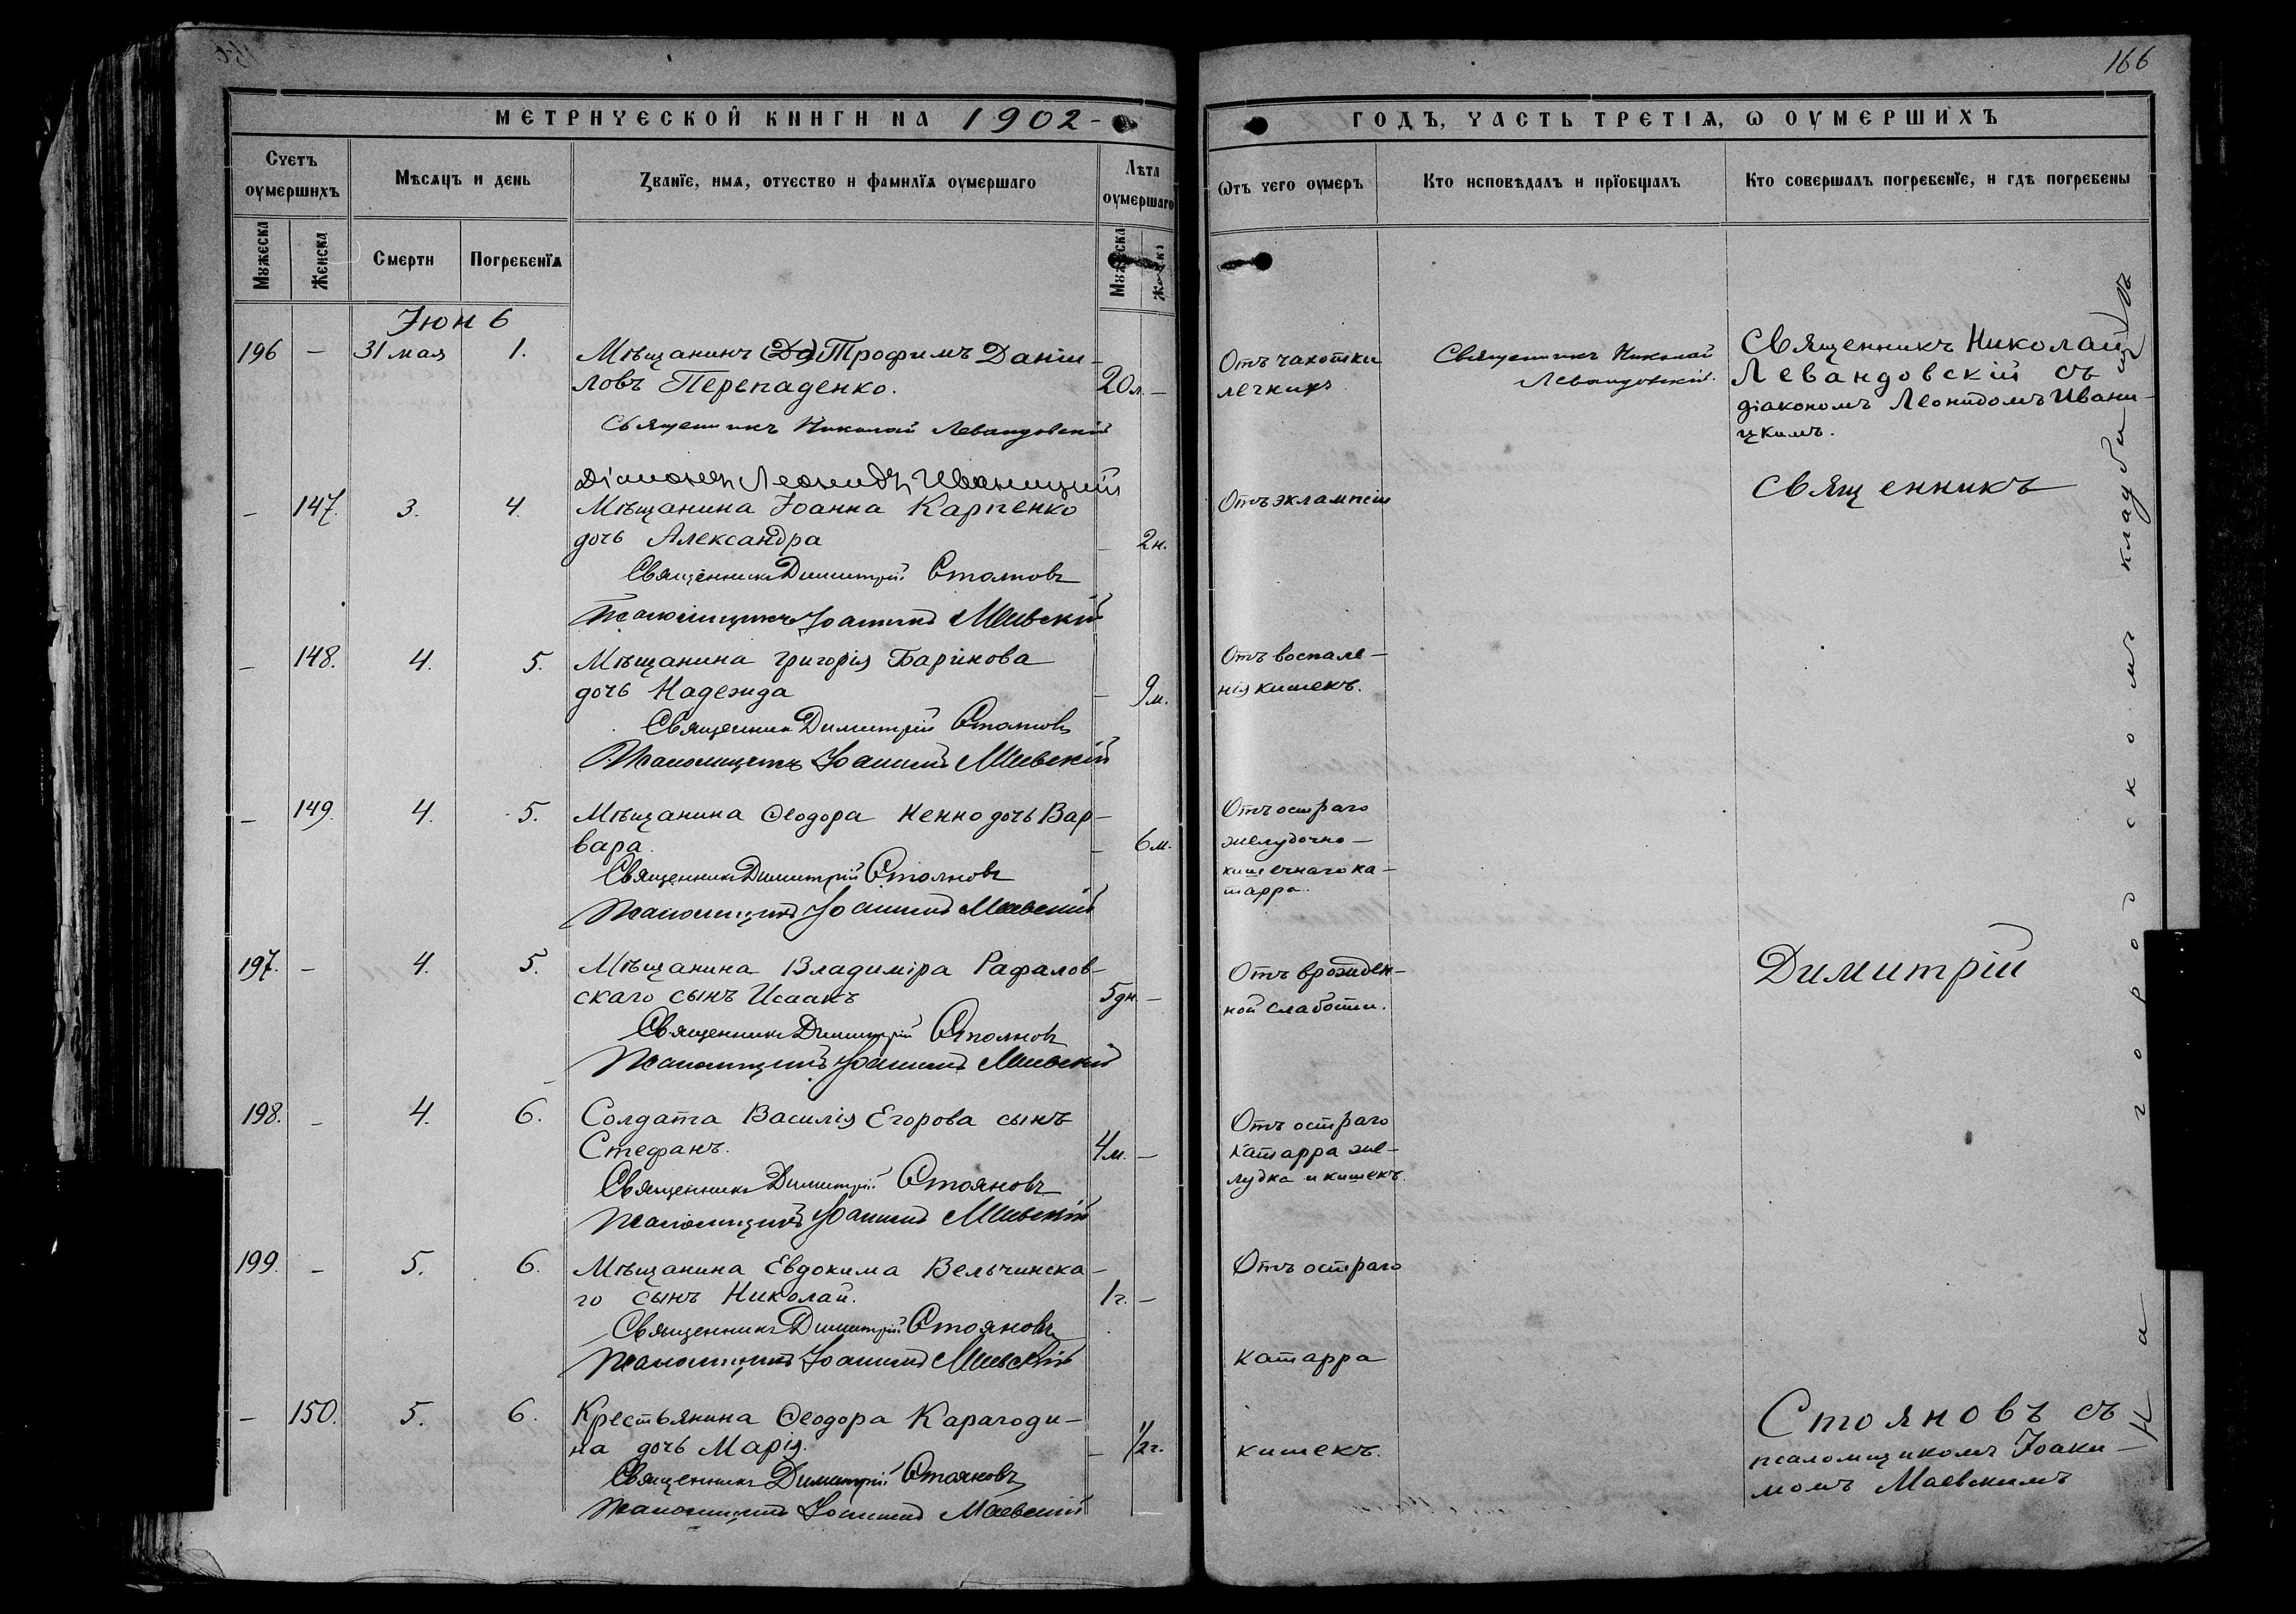 166
МЕТРИЧЕСКОЙ КНИГИ НА 1902
ГОДЪ, ЧАСТЬ ТРЕТІЯ, Ѡ ОУМЕРШИХЪ
Счетъ оумершихъ
Мѣсяцъ и день
Званїе, имя, отчество и фамилїя оумершаго
Лѣта оумершаго
Ѿтъ чего оумеръ
Кто исповѣдалъ и прїобщалъ
Кто совершалъ погребенїе, и гдѣ погребены
Мужеска
Женска
Смерти
Погребенїя
Мужеска
Женска
Іюнь
196 — 31 мая 1. Мѣщанинъ (Да) Трофимъ Данiи-
ловъ Перепаденко. 20 л. —
Священникъ Николай Левандовскій
Діаконъ Леонидъ Иваницкій
Отъ чахотки
легкихъ
Священникъ Николай
Левандовскій.
Священникъ Николай
Левандовскій съ
діакономъ Леонидомъ Ивани-
цкимъ.
— 147. 3. 4. Мѣщанина Іоанна Карпенко
дочь Александра — 2 н.
Священникъ Димитрій Стояновъ
Псаломщикъ Іоакимъ Маевскій
Отъ эклампсіи
Священникъ
— 148. 4. 5. Мѣщанина Григорія Баринова
дочь Надежда — 9 м.
Священникъ Димитрій Стояновъ
Псаломщикъ Іоакимъ Маевскій
Отъ воспале-
нія кишекъ.
— 149. 4. 5. Мѣщанина Ѳеодора Ненно дочь Вар-
вара. — 6 м.
Священникъ Димитрій Стояновъ
Псаломщикъ Іоакимъ Маевскій
Отъ остраго
желудочно-
кишечнаго ка-
тарра.
197. — 4. 5. Мѣщанина Владиміра Рафалов-
скаго сынъ Исаакъ 5 дн. —
Священникъ Димитрій Стояновъ
Псаломщикъ Іоакимъ Маевскій
Отъ врожден-
ной слабости.
Димитрій
198. — 4. 6. Солдата Василія Егорова сынъ
Стефанъ. 4 м. —
Священникъ Димитрій Стояновъ
Псаломщикъ Іоакимъ Маевскій
Отъ остраго
катарра же-
лудка и кишекъ.
199. — 5. 6. Мѣщанина Евдокима Вельчинска-
го сынъ Николай. 1 г. —
Священникъ Димитрій Стояновъ
Псаломщикъ Іоакимъ Маевскій
Отъ остраго
катарра
— 150. 5. 6. Крестьянина Ѳеодора Карагоди-
на дочь Марія. — 1/2 г.
Священникъ Димитрій Стояновъ
Псаломщикъ Іоакимъ Маевскій
кишекъ.
Стояновъ съ
псаломщикомъ Іоаки-
момъ Маевскимъ
На городскомъ кладбищѣ